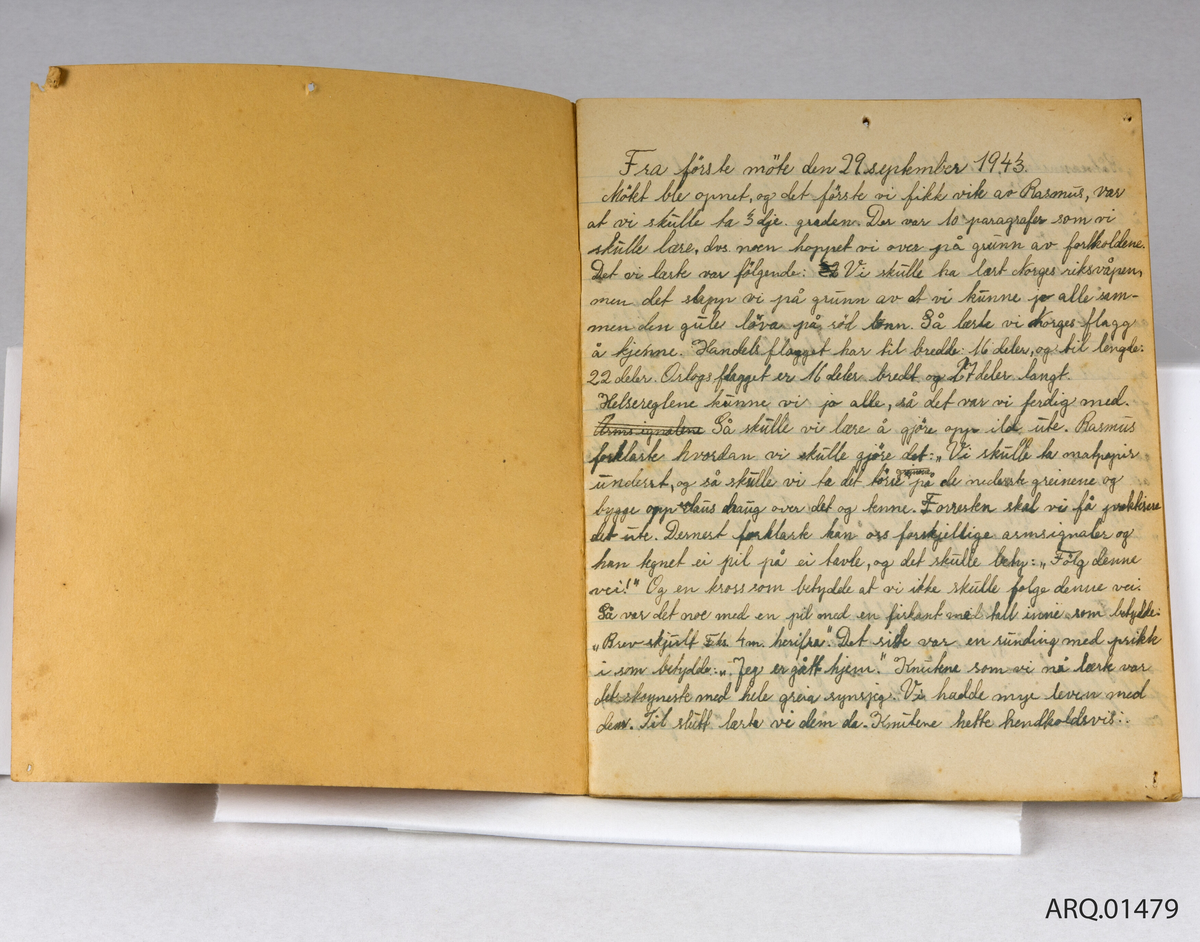 Fra förste möte den 29 september 1943.
Mökt ble opnet, og det förste vi fikk vite av Rasmus, var
at vi skulle ta 3dje. graden. Der var 10 paragrafer som vi
skulle lære, dvs. noen hoppet vi over på grunn av forlholdene.
Det vi lærte var fölgende: Vi skulle ha lært Norges riksvåpen,
men det slapp vi på grunn av at vi kunne jo alle sam-
men den gule löva på röd bonn. Så lærte vi Norges flagg
å kjenne. Handelsflagget har til bredde: 16 deler, og til lengde.
22 deler. Orlogsflagget er 16 deler bredt og 27 deler langt.
Helsereglene kunne vi jo alle, så det var vi ferdig med.
Armsignalene Så skulle vi lære å gjöre opp ild ute. Rasmus
forklarte hvordan vi skulle gjöre det: „Vi skulle ta matpapir
underst, og så skulle vi ta det törre på de nederste greinene og
bygge opp et laus haug over det og tenne. Forresten skal vi få praktisere
det ute. Dernest forklarte han oss forskjellige armsignaler og
han tegnet ei pil på ei tavle, og det skulle bety: „Fölg denne
vei!" Og en kross som betydde at vi ikke skulle fölge denne vei.
Så var det noe med en pil med en firkant med tall inni som betydde:
„Brev skjult 4 m. herifra". Det siste var en runding med prikk
i som betydde: „Jeg er gått hjem." Knutene som vi nå lærte var
det skogneste med hele greia synsjeg. Vi hadde mye leven med
dem. Til slutt lærte vi dem da. Knutene hette hendholdsvis:.
ARQ.01479